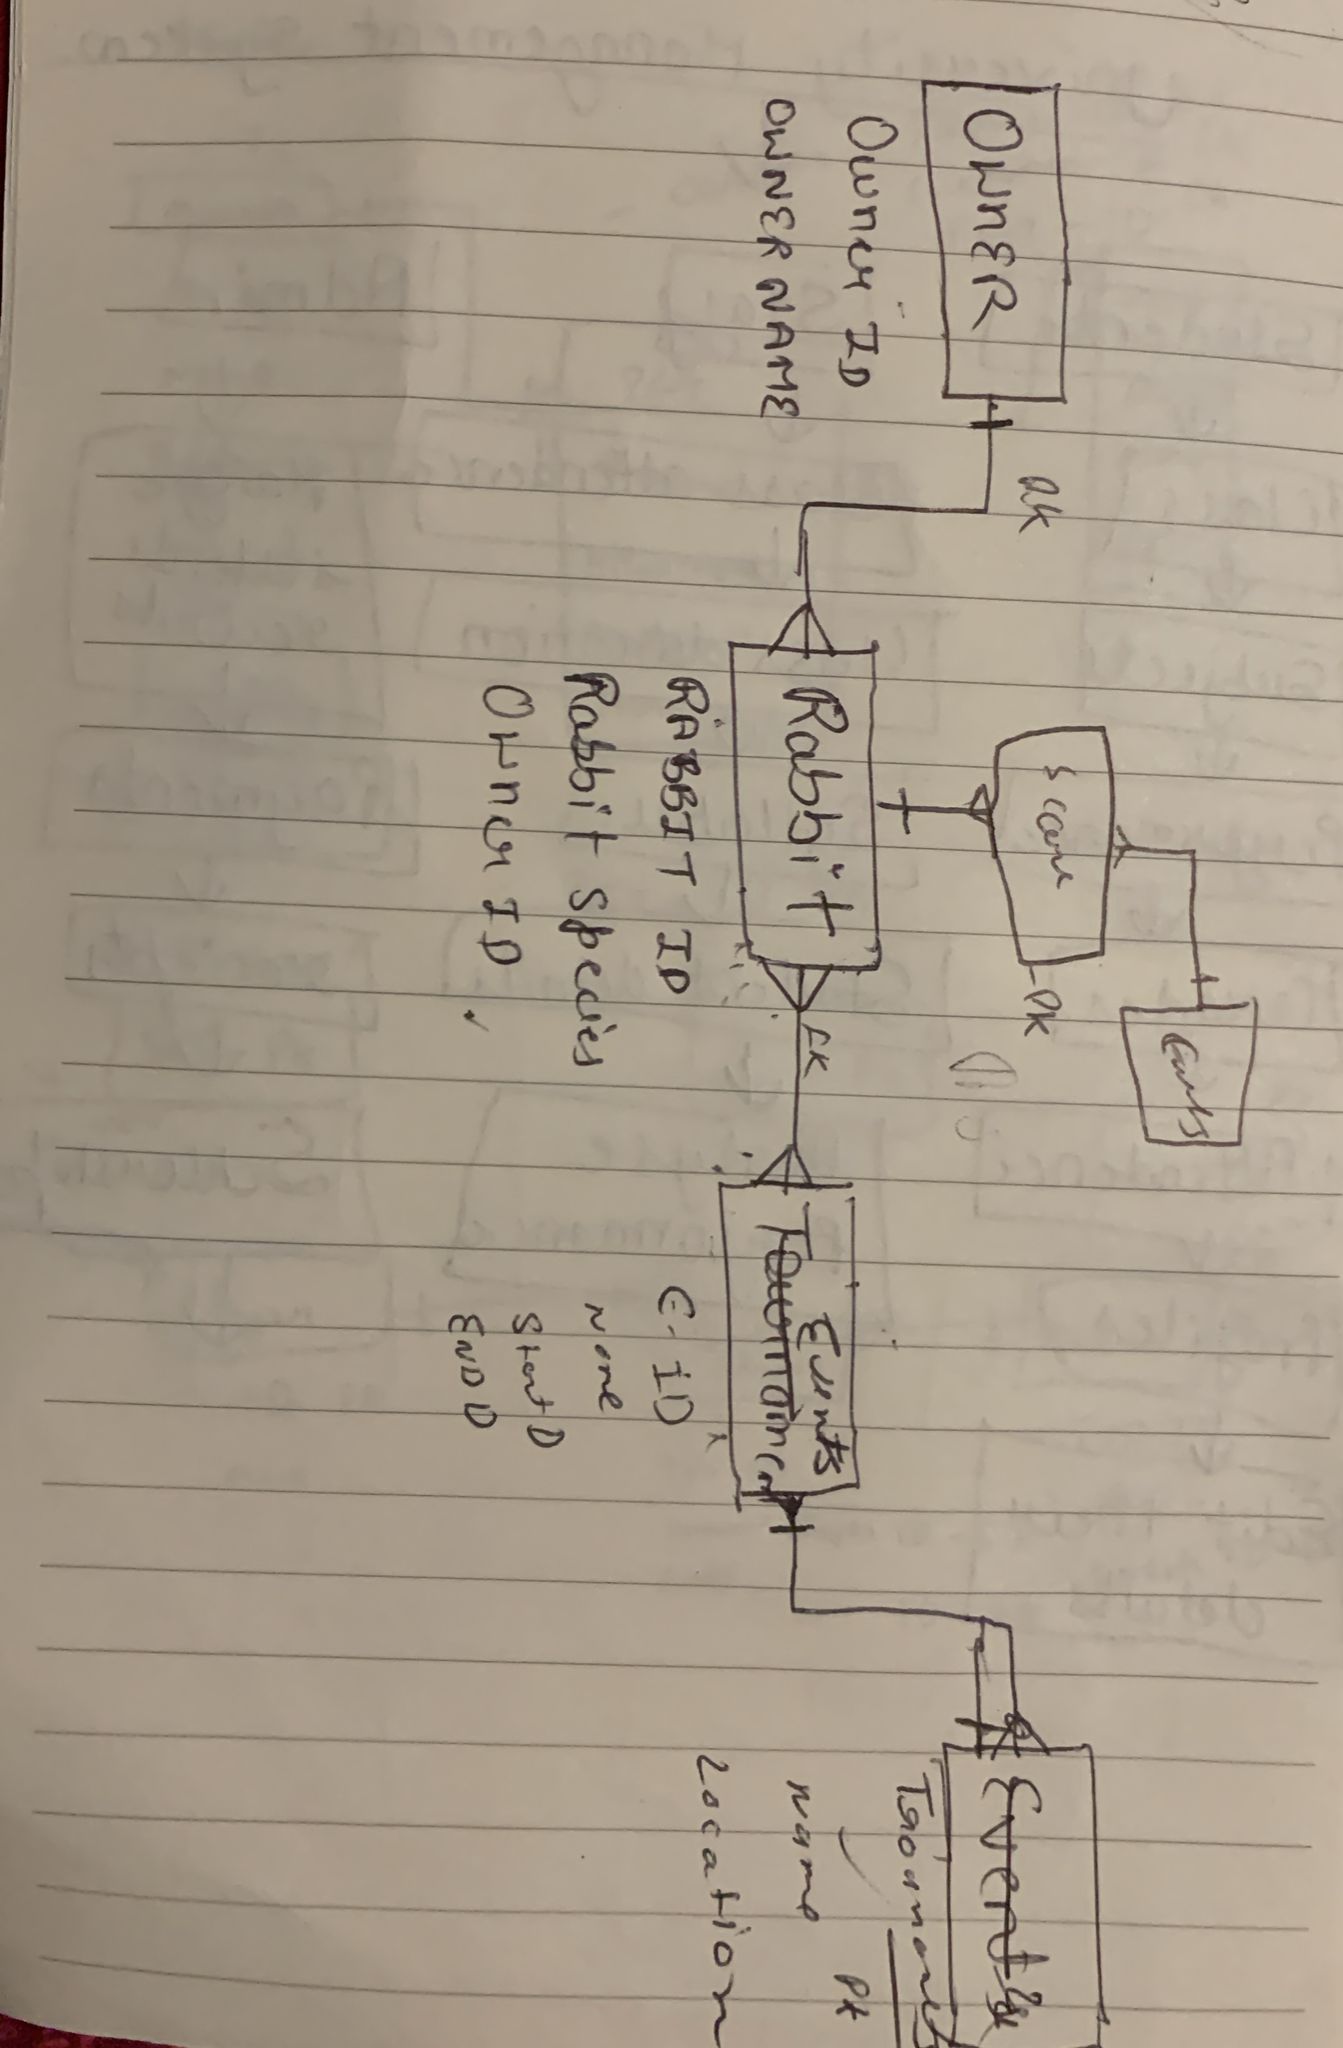 OWNER
Owner ID
OWNER NAME
PK
Rabbit
RABBIT ID
Rabbit Species
Owner ID
Score
PK
Events
FK
Tournamen
Events
E-ID
Name
Start D
END D
Events
Name
PK
Location